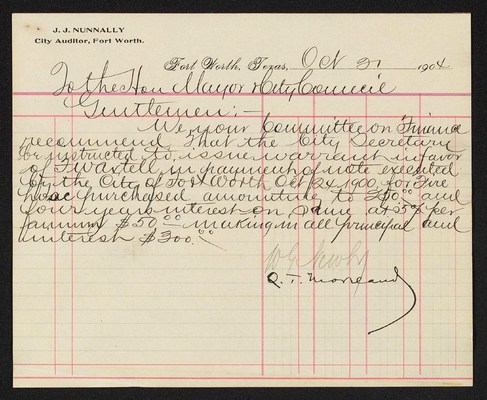 J. J. NUNNALLY
City Auditor, Fort Worth.
Fort Worth, Texas, Oct 31 1904
To the Hon Mayor & City Council
Gentlemen; -
We your Committee on Finance
recommend that the City Secretary
be instructed to issue warrant in favor
of in payment of note executed
by the City of Fort Worth Oct 24 1900 for Fire
purchased amounting to $250.00 and
four years interest on same at 5% per
annum $50.00 making in all principal and
interest $300.00
Q. T. Moreland